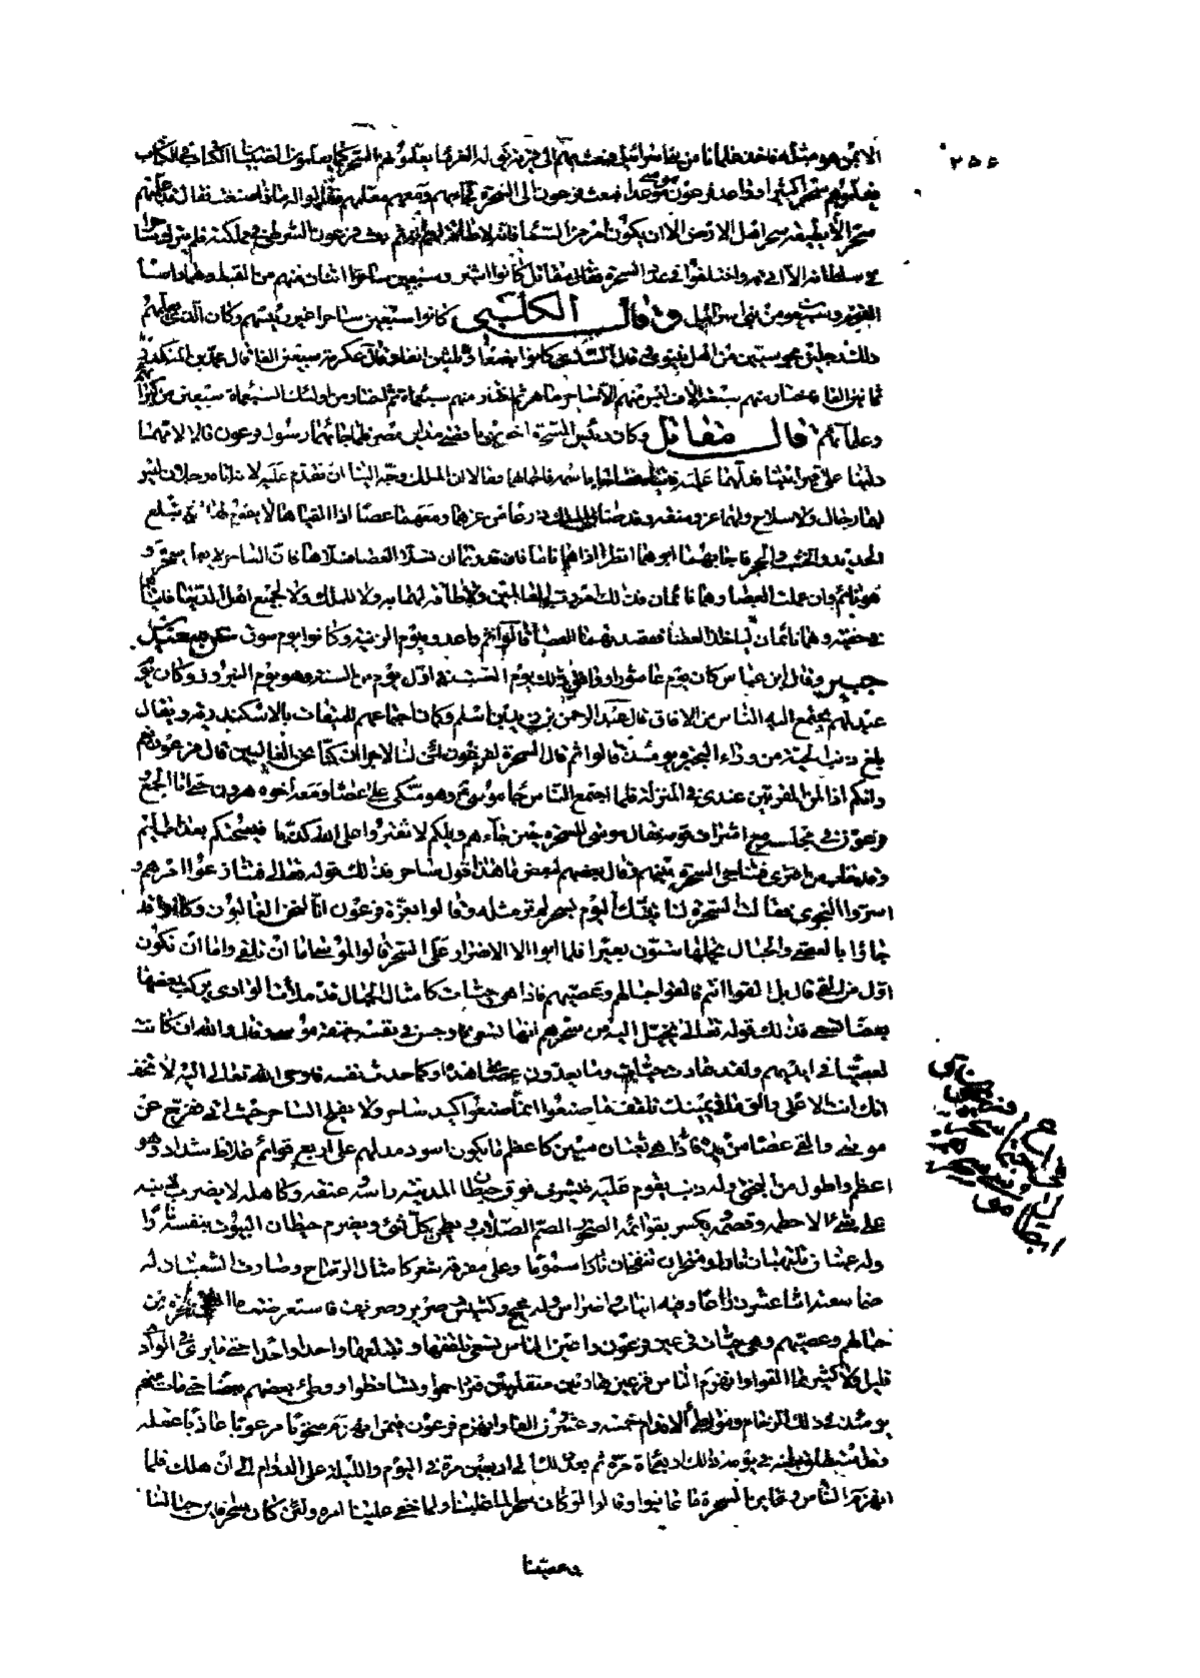 ٢٥٤
الا بمن هو مثله فاخذ غلمانا من بنى اسرائيل فبعث بهم الى قرية يقال لها الفرما يعلمونهم السحر كما يعلمون الصبيان الكتاب فى الكتاب
فعلموهم سحرا كثيرا وواعد فرعون موسى موعدا فبعث فرعون الى السحرة فجاء بهم ومعهم معلمهم فقالوا له ماذا صنعت فقال قد علمتهم
سحرا لا يطيقه سحر اهل الارض الا ان يكون امر من السماء فانه لا طاقة لهم به ثم بعث فرعون الشرطى فى مملكته فلم يترك ساحرا
فى سلطانه الا اتى به واختلفوا فى عدد السحرة فقال مقاتل كانوا اثنين وسبعين ساحرا اثنان منهم من القبط وهما راسا
القوم وسبعون من بنى اسرائيل وقال الكلبى كانوا سبعين ساحرا غير رئيسهم وكان الذى يعلمهم
ذلك رجلين مجوسيين من اهل نينوى وقال السدى كانوا بضعا وثلثين الفا وقال عكرمة سبعين الفا قال محمد بن المنكدر
ثمانين الفا فاختار منهم سبعة الاف ليس منهم الا ساحر ماهر ثم اختار منهم سبعمائة ثم اختار من اولئك السبعمائة سبعين من كبرائهم
وعلمائهم قال مقاتل وكان رئيس السحرة اخوين باقصى مداين مصر فلما جائهما رسول فرعون قالا لامهما
دلينا على قبر ابينا فدلتهما عليه فاتياه فصاحا باسمه فاجابهما فقالا ان الملك وجه الينا ان نقدم عليه لانه اتاه رجلان ليس
لهما رجال ولا سلاح ولهما عز ومنعة وقد ضاق الملك ذرعا من عزهما ومعهما عصا اذا القياها لا يقوم لها شئ تبلع
الحديد والخشب والحجر فاجابهما ابوهما انظرا اذا هما ناما فان قدرتما ان تسلا العصا فسلاها فان الساحر لا يعمل سحره
وهو نائم فان عملت العصا وهما نائمان فذلك امر رب العالمين ولا طاقة لكما به ولا للملك ولا لجميع اهل الدنيا فاتياهما
فى خفية وهما نائمان ليأخذا العصا فقصدتهما العصا قالوا ثم واعدوه يوم الزينة وكانوا يوم سوق عن سعيد بن
جبير وقال ابن عباس كان يوم عاشورا ووافق ذلك يوم السبت فى اول يوم من السنة وهو يوم النيروز وكان يوم
عيد لهم يجتمع اليه الناس من الافاق قال عبد الرحمن بن زيد بن اسلم وكان اجتماعهم للميقات بالاسكندرية ويقال
بلغ ذنب الحية من وراء البحيرة يومئذ قالوا ثم قال السحرة لفرعون ائن لنا لاجرا ان كنا نحن الغالبين قال فرعون نعم
وانكم اذا لمن المقربين عندى فى المنزلة فلما اجتمع الناس جاء موسى وهو متكئ على عصا ومعه اخوه هرون حتى اتا الجمع
وفرعون فى مجلسه مع اشراف قومه فقال موسى للسحرة حين جاءهم ويلكم لا تفتروا على الله كذبا فيسحتكم بعذاب
وقد خاب من افترى فتناجى السحرة بينهم وقال بعضهم لبعض ما هذا قول ساحر فذلك قوله تعالى فتنازعوا امرهم
اسروا النجوى فقالت السحرة لنأتينك اليوم بسحر لم تر مثله وقالوا بعزة فرعون انا لنحن الغالبون وكانوا قد
جاؤا بالعصى والحبال يحملها ستون بعيرا فلما ابوا الا الاصرار على السحر قالوا لموسى اما ان تلقى واما ان نكون
اول من القى قال بل القوا انتم فالقوا حبالهم وعصيهم فاذا هى حيات كامثال الجبال قد ملأت الوادى يركب بعضها
بعضا تسعى فذلك قوله تعالى يخيل اليه من سحرهم انها تسعى فاوجس فى نفسه خيفة موسى وقال والله ان كانت
لعصيا فى ايديهم ولقد عادت حيات وما يعدون عصاى هذه او كما حدث نفسه فاوحى الله تعالى اليه لا تخف
انك انت الاعلى والق ما فى يمينك تلقف ما صنعوا انما صنعوا كيد ساحر ولا يفلح الساحر حيث اتى ففرج عن
موسى والقى عصا من يده فاذا هى ثعبان مبين كاعظم ما يكون اسود مدلهم على اربع قوائم غلاظ شداد وهو
اعظم واطول من البختى وله ذنب يقوم عليه فيشرف فوق حيطان المدينة راسه عنقه وكاهله لا يضرب ذنبه
على شئ الا حطمه وقصمه يكسر بقوائمه الصخور الصم الصلاب ويطحن كل شئ ويضرم حيطان البيوت بنفسه نارا
وله عينان تلتهبان نارا ومنخران تنفخان نارا سموما وعلى معرفته شعر كامثال الرماح وصارت الشعبتان له
فما سعته اثنا عشر ذراعا وفيه انياب واضراس وله فحيح وكشيش وصرير وصريف فاستعرضت ما القى السحرة من
حبالهم وعصيهم وهى حيات فى عين فرعون واعين الناس تسعى تلقفها وتبتلعها واحدا واحدا حتى ما يرى فى الواد
قليل ولا كثير مما القوا وانهزم الناس فزعين هاربين منقلبين فتزاحموا وتضاغطوا ووطئ بعضهم بعضا حتى مات منهم
يومئذ فى ذلك الزحام ومواطئ الاقدام خمسة وعشرون الفا وانهزم فرعون فيمن انهزم منخوبا مرعوبا عازبا عقله
وقد استطلق بطنه فى يومه ذلك اربعمائة مرة ثم بعد ذلك الى اربعين مرة فى اليوم والليلة على الدوام الى ان هلك فلما
انهزم الناس وعاين السحرة ما عاينوا وقالوا لو كان سحرا لما غلبنا ولما خفى علينا امره ولئن كان سحرا فاين حبالنا
وعصينا